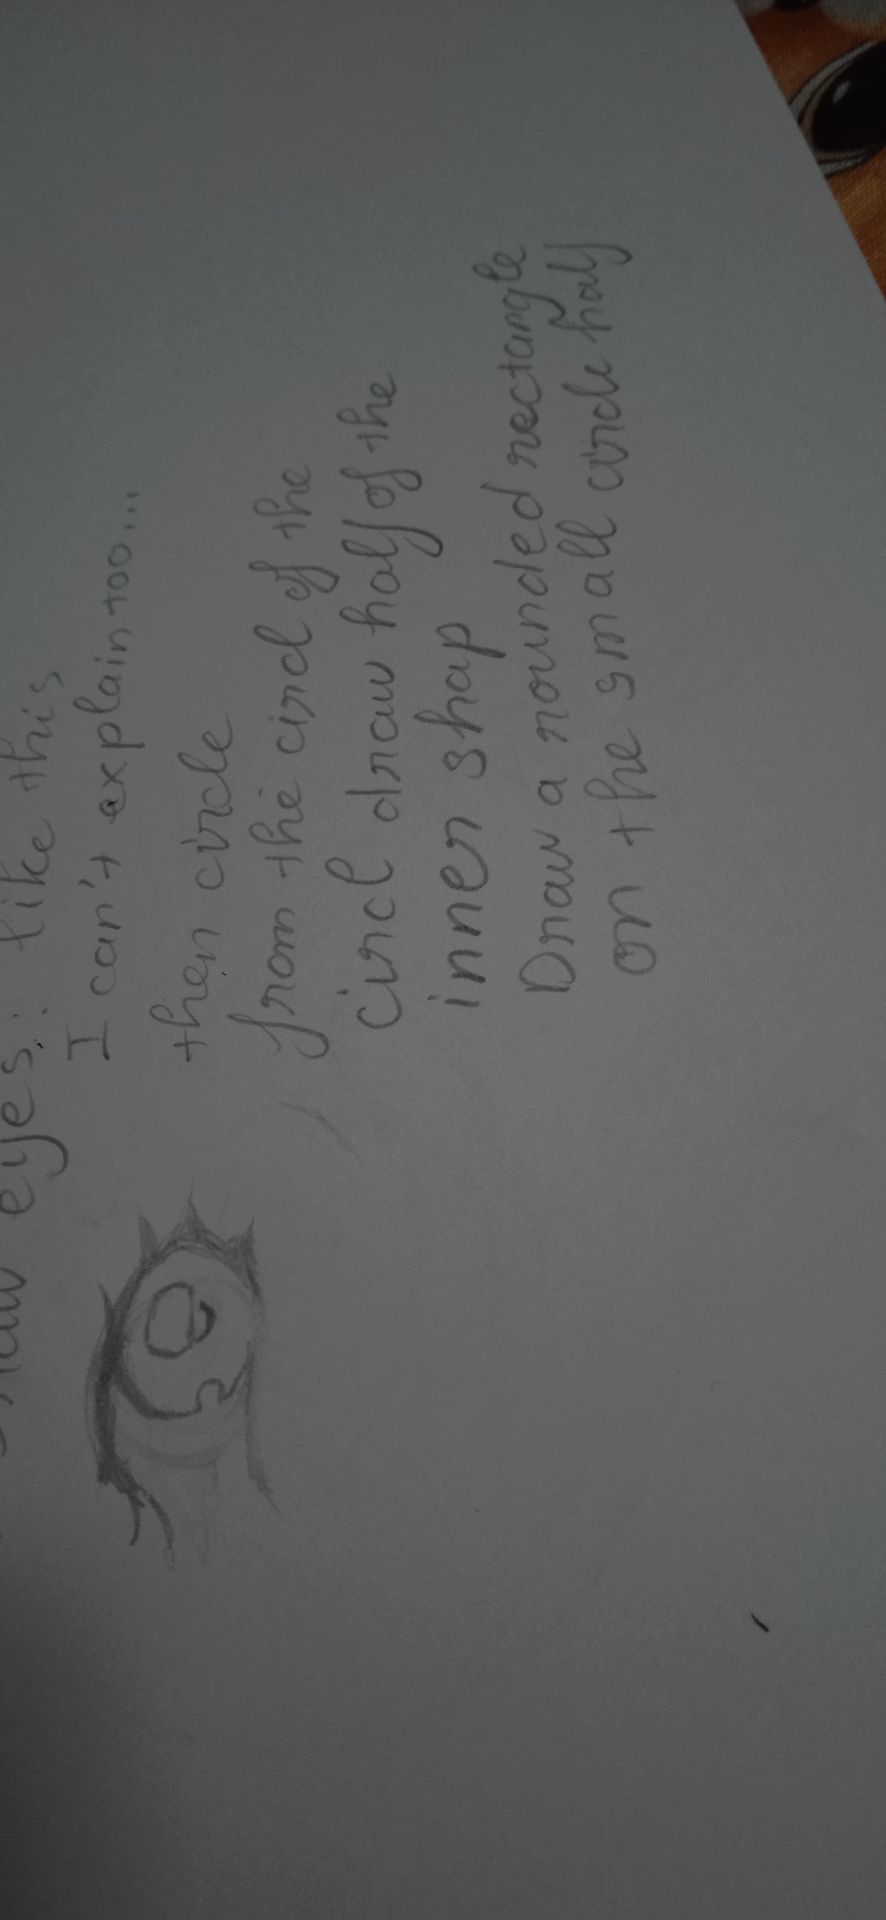 eyes: like this
I can't explain too...
then circle
from the circl of the
circl draw half of the
inner shap
Draw a rounded rectangle
on the small circle half